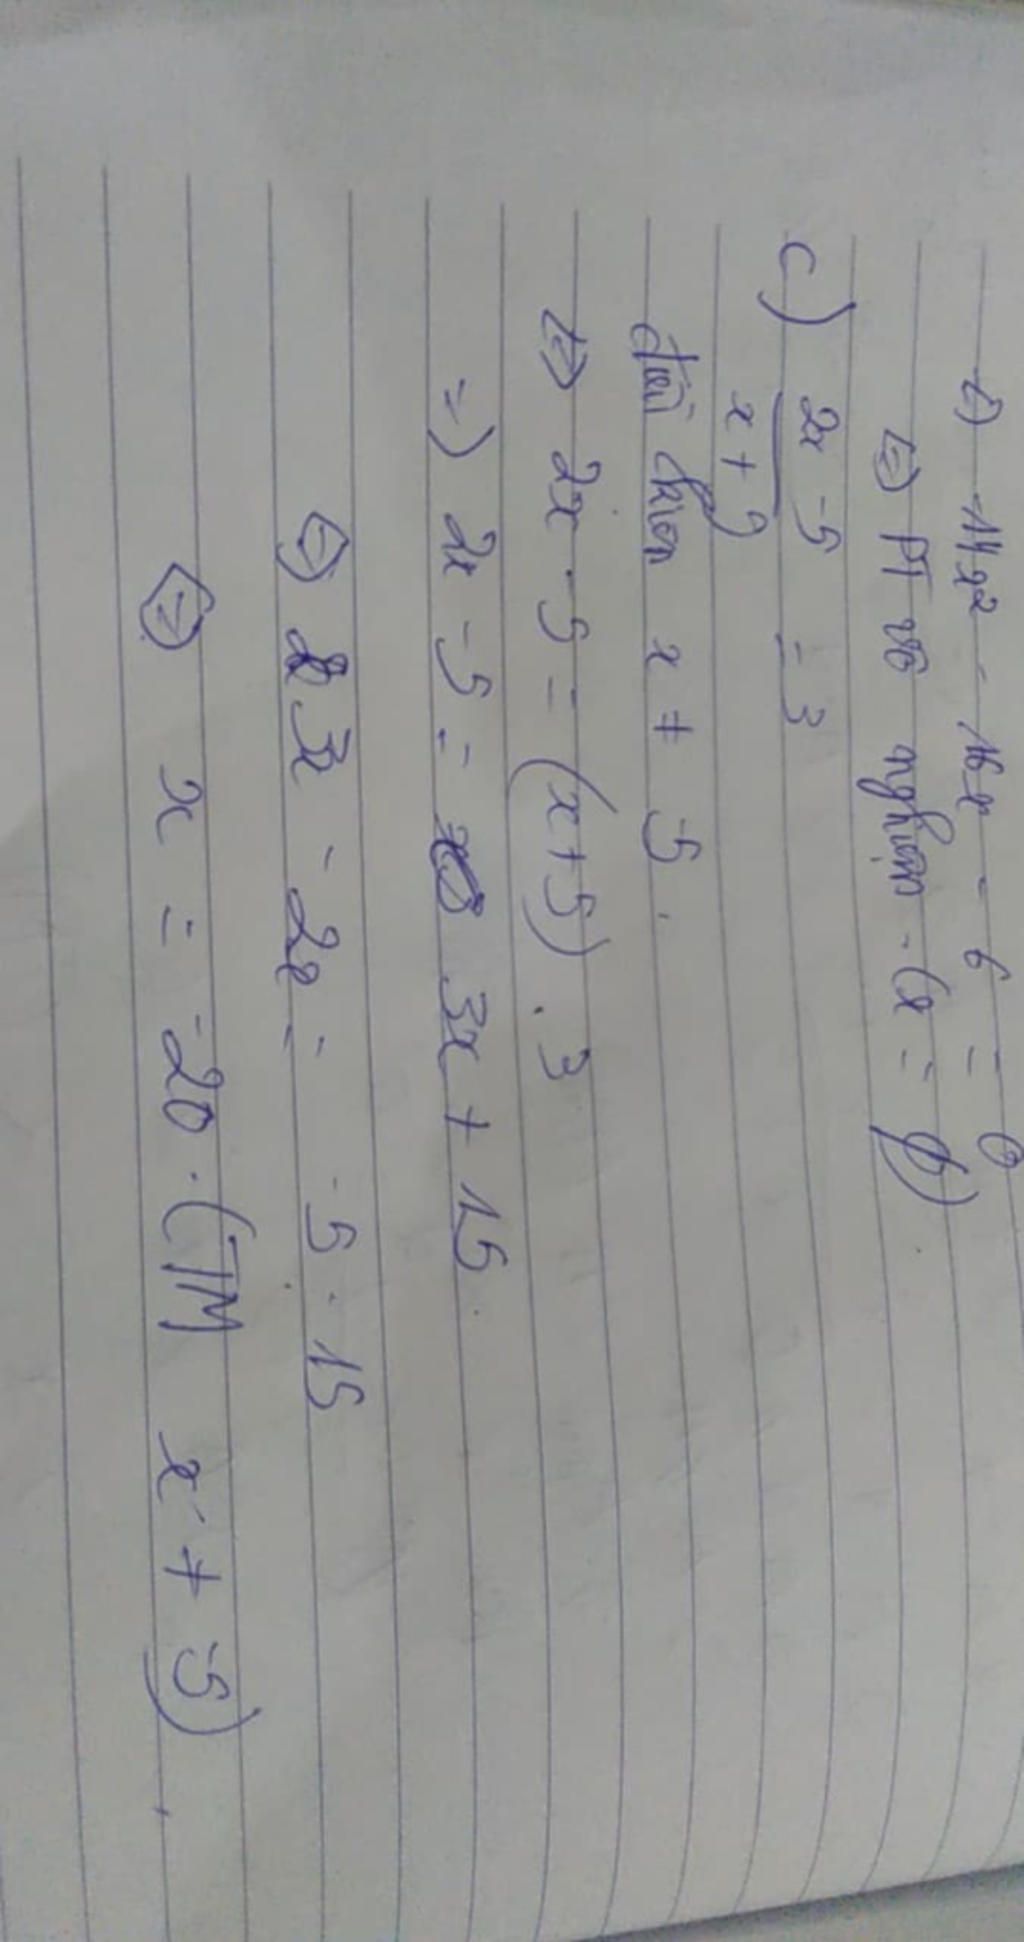 ⇔ 14x² - 16x - 6 = 0
⇔ PT vô nghiệm - (x = ∅)
c) 2x - 5 = 3
x + 5
điều kiện x ≠ -5.
⇔ 2x - 5 = (x + 5) . 3
=> 2x - 5 = 3x + 15.
⇔ 3x - 2x = -5 - 15
⇔ x = -20. (TM x ≠ -5).